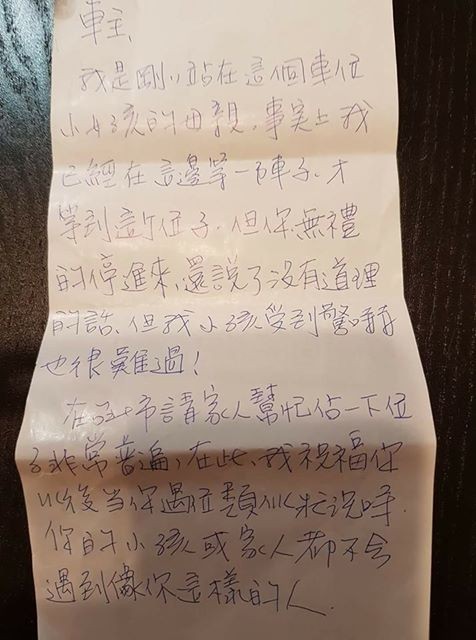 車主
我是剛剛站在這個車位
小女孩的母親,事實上我
已經在這邊等一陣子,才
等到這个位子,但你無禮
的停進來,還說了沒有道理
的話,但我小孩受到驚嚇
也很難過!
在 市請家人幫忙佔一下位
子非常普遍,在此,我祝福你
以後當你遇到類似狀況時,
你的小孩或家人都不會
遇到像你這樣的人.